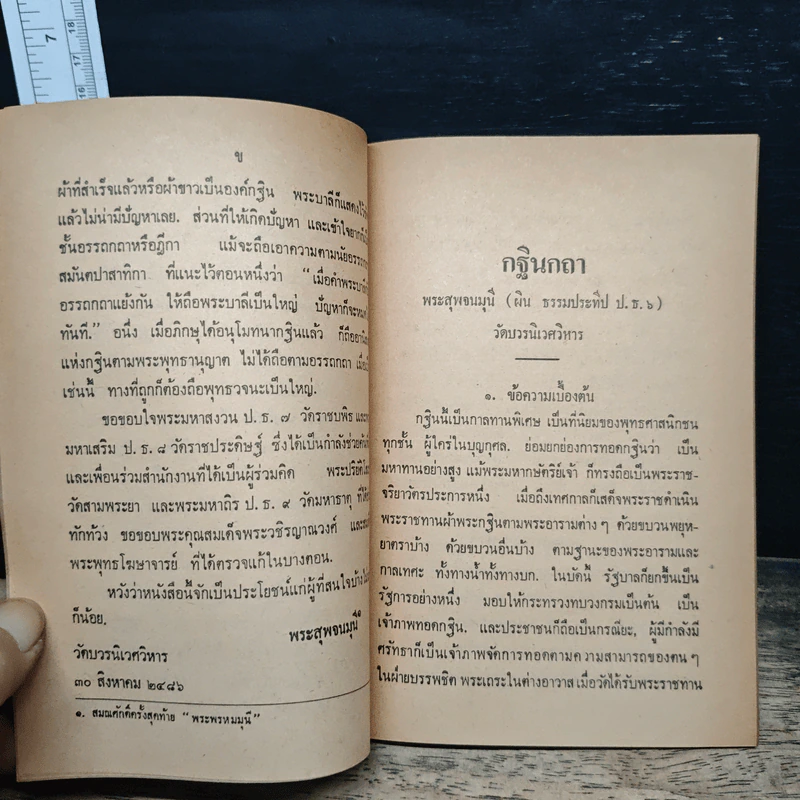 7
18
17
16
ข
ผ้าที่สำเร็จแล้วหรือผ้าขาวเป็นองค์กฐิน พระบาลีก็แสดงไว้
แล้วไม่น่ามีปัญหาเลย. ส่วนที่ให้เกิดปัญหา และเข้าใจยาก
ชั้นอรรถกถาหรือฎีกา แม้จะถือเอาความตามนัยอรรถกถา
สมันตปาสาทิกา ที่แนะไว้ตอนหนึ่งว่า “เมื่อคำพระบาลี
อรรถกถาแย้งกัน ให้ถือพระบาลีเป็นใหญ่ ปัญหาก็จะหมด
ทันที.” อนึ่ง เมื่อภิกษุได้อนุโมทนากฐินแล้ว ก็ถือ
แห่งกฐินตามพระพุทธานุญาต ไม่ได้ถือตามอรรถกถา เมื่อ
เช่นนี้ ทางที่ถูกก็ต้องถือพุทธวจนะเป็นใหญ่.
ขอขอบใจพระมหาสงวน ป. ธ. ๗ วัดราชบพิธ และ
มหาเสริม ป. ธ. ๘ วัดราชประดิษฐ์ ซึ่งได้เป็นกำลังช่วย
และเพื่อนร่วมสำนักงานที่ได้เป็นผู้ร่วมคิด พระปริยัติ
วัดสามพระยา และพระมหาถิร ป. ธ. ๙ วัดมหาธาตุ ที่ได้
ทักท้วง ขอขอบพระคุณสมเด็จพระวชิรญาณวงศ์ และ
พระพุทธโฆษาจารย์ ที่ได้ตรวจแก้ในบางตอน.
หวังว่าหนังสือนี้จักเป็นประโยชน์แก่ผู้ที่สนใจบ้าง
ก็น้อย.
พระสุพจนมุนี
วัดบวรนิเวศวิหาร
๓๐ สิงหาคม ๒๔๘๖
๑. สมณศักดิ์ครั้งสุดท้าย “พระพรหมมุนี”
กฐินกถา
พระสุพจนมุนี (ผิน ธรรมประทีป ป. ธ. ๖)
วัดบวรนิเวศวิหาร
๑. ข้อความเบื้องต้น
กฐินนี้เป็นกาลทานพิเศษ เป็นที่นิยมของพุทธศาสนิกชน
ทุกชั้น ผู้ใคร่ในบุญกุศล. ย่อมยกย่องการทอดกฐินว่า เป็น
มหาทานอย่างสูง แม้พระมหากษัตริย์เจ้า ก็ทรงถือเป็นพระราช-
จริยาวัตรประการหนึ่ง เมื่อถึงเทศกาลก็เสด็จพระราชดำเนิน
พระราชทานผ้าพระกฐินตามพระอารามต่าง ๆ ด้วยขบวนพยุห-
ยาตราบ้าง ด้วยขบวนอื่นบ้าง ตามฐานะของพระอารามและ
กาลเทศะ ทั้งทางน้ำทั้งทางบก. ในบัดนี้ รัฐบาลก็ยกขึ้นเป็น
รัฐการอย่างหนึ่ง มอบให้กระทรวงทบวงกรมเป็นต้น เป็น
เจ้าภาพทอดกฐิน. และประชาชนก็ถือเป็นกรณียะ, ผู้มีกำลังมี
ศรัทธาก็เป็นเจ้าภาพจัดการทอดตามความสามารถของตน ๆ
ในฝ่ายบรรพชิต พระเถระในต่างอาวาส เมื่อวัดได้รับพระราชทาน